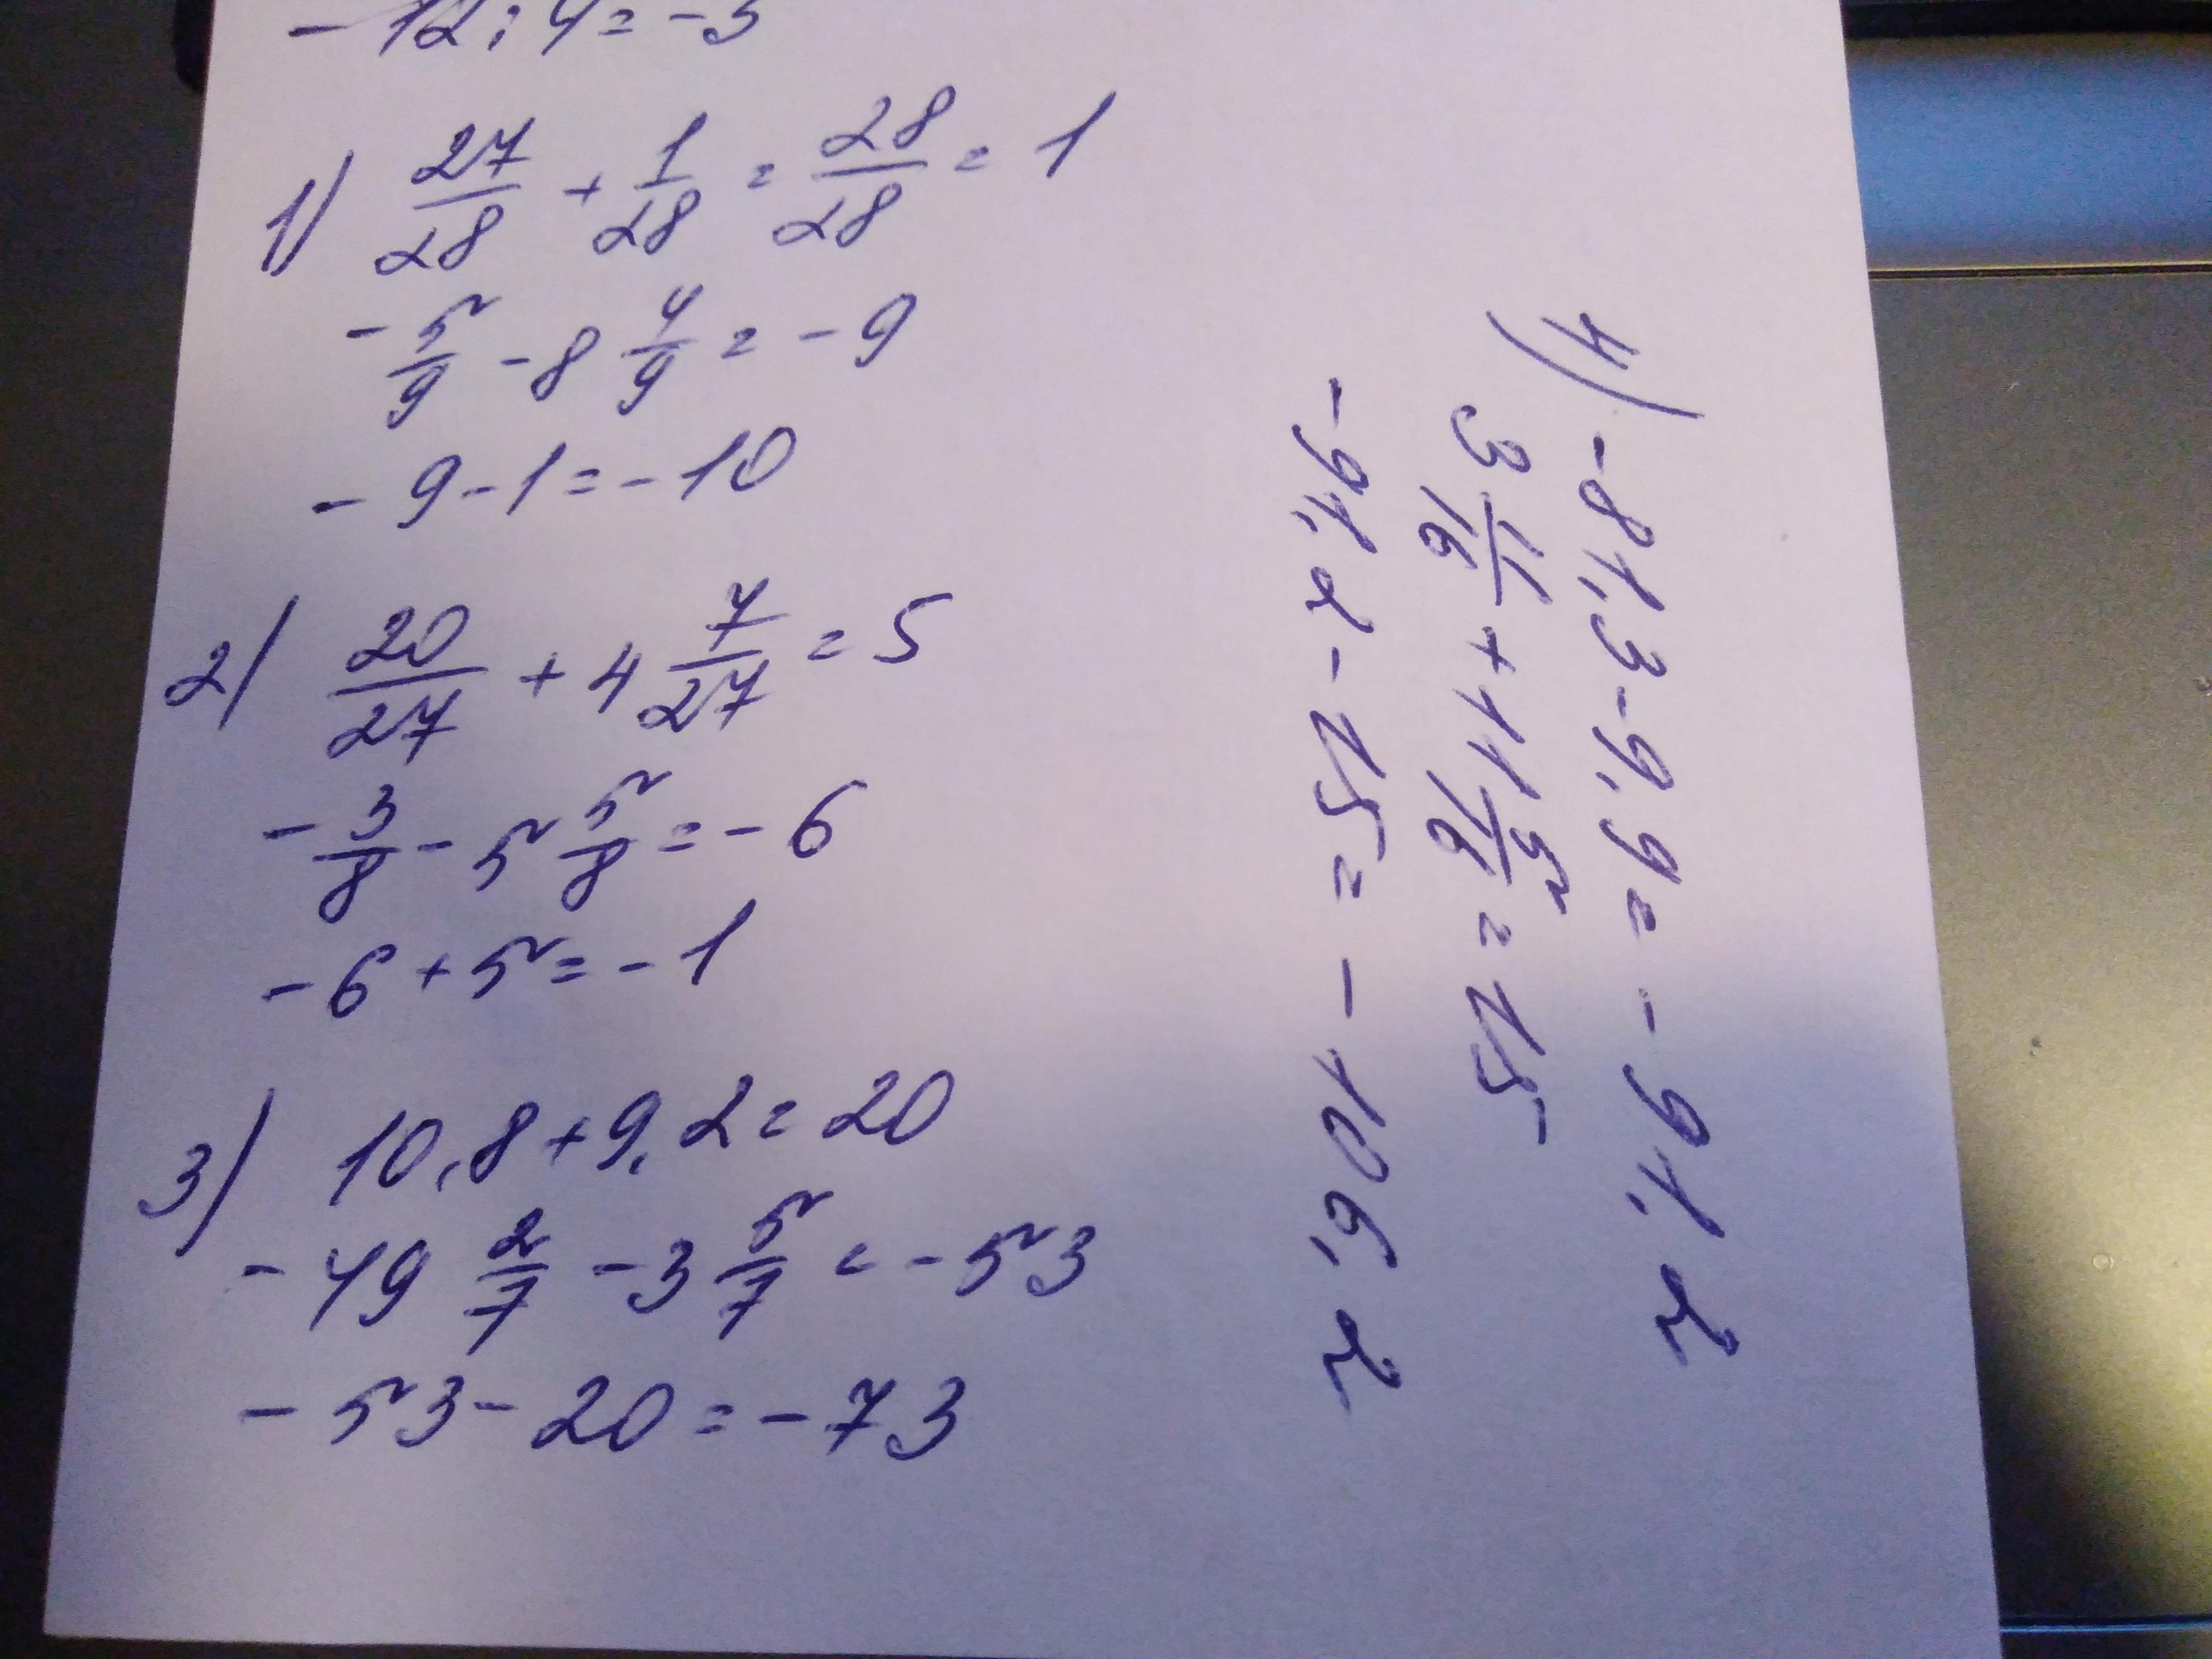 - 12 : 4 = -3
1) 27/28 + 1/28 = 28/28 = 1
- 5/9 - 8 4/9 = - 9
- 9 - 1 = - 10
2) 20/27 + 4 7/27 = 5
- 3/8 - 5 5/8 = - 6
- 6 + 5 = - 1
3) 10,8 + 9,2 = 20
- 49 2/7 - 3 5/7 = - 53
- 53 - 20 = - 73
4) - 81,3 - 9,9 = - 91,2
3 11/16 + 11 5/16 = 15
- 91,2 - 15 = - 106,2